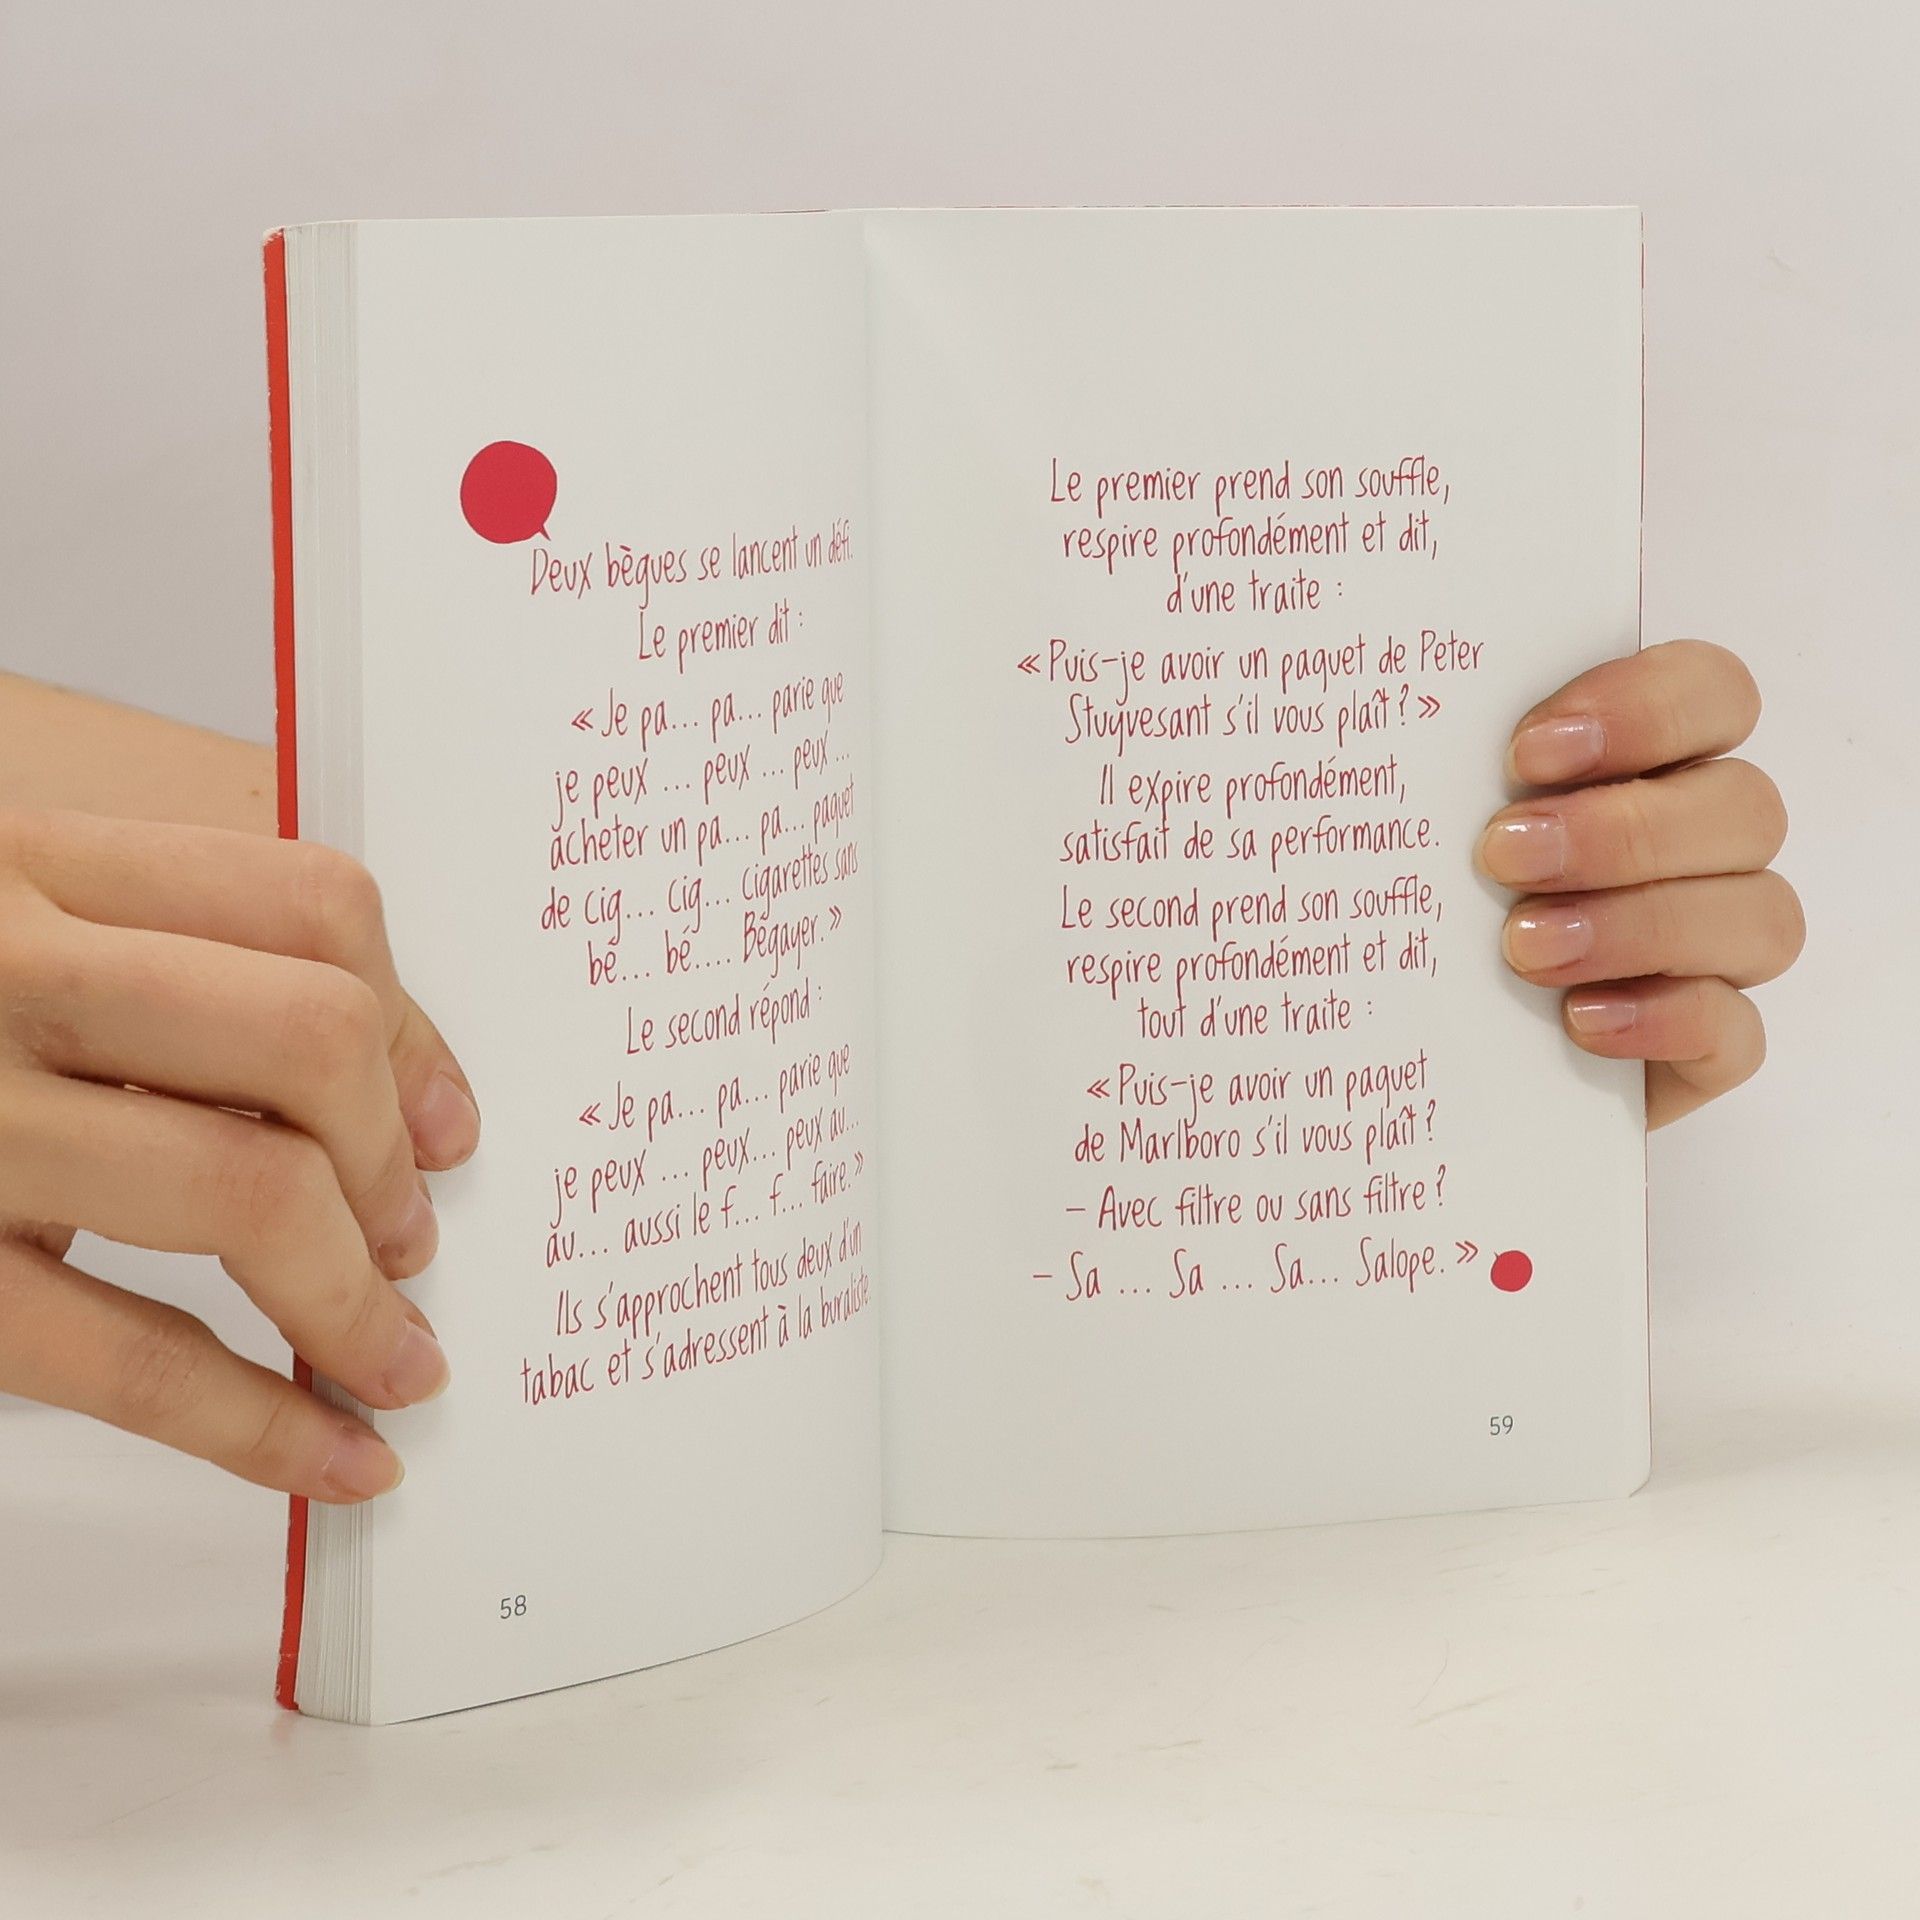 Deux bègues se lancent un défi.
Le premier dit :
« Je pa... pa... parie que
je peux ... peux ... peux ...
acheter un pa... pa... paquet
de cig... cig... cigarettes sans
bé... bé.... Bégayer. »
Le second répond :
« Je pa... pa... parie que
je peux ... peux... peux au...
au... aussi le f... f... faire. »
Ils s'approchent tous deux d'un
tabac et s'adressent à la buraliste.
58
Le premier prend son souffle,
respire profondément et dit,
d'une traite :
« Puis-je avoir un paquet de Peter
Stuyvesant s'il vous plaît ? »
Il expire profondément,
satisfait de sa performance.
Le second prend son souffle,
respire profondément et dit,
tout d'une traite :
« Puis-je avoir un paquet
de Marlboro s'il vous plaît ?
– Avec filtre ou sans filtre ?
– Sa ... Sa ... Sa... Salope. »
59